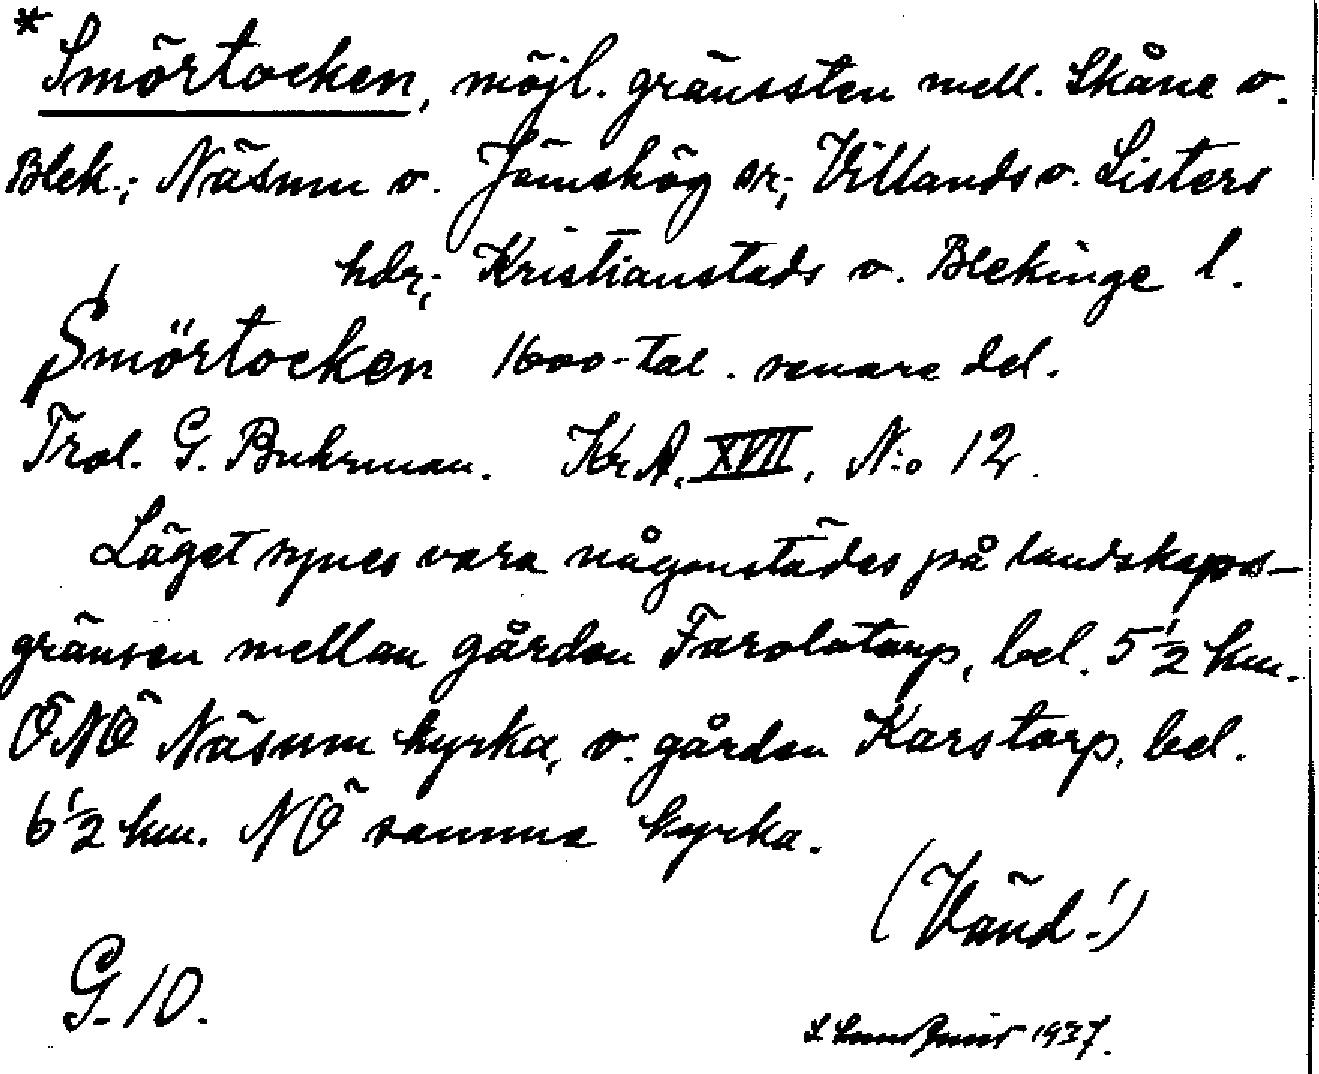 *Smörtocken, möjl. gränssten mell. Skåne o.
Blek.; Näsum o. Jämshög sr; Villands o. Listers
hdr; Kristianstads o. Blekinge l.
Smörtocken 1600-tal. senare del.
Trol. G. Buhrman. Kr.A. XVII, N:o 12.
Läget synes vara någonstädes på landskaps-
gränsen mellan gården Farolstorp, bel. 5 1/2 km.
ÖNÖ Näsum kyrka, o. gården Karstorp, bel.
6 1/2 km. NÖ samma kyrka.
(Vänd!)
G. 10.
1937.